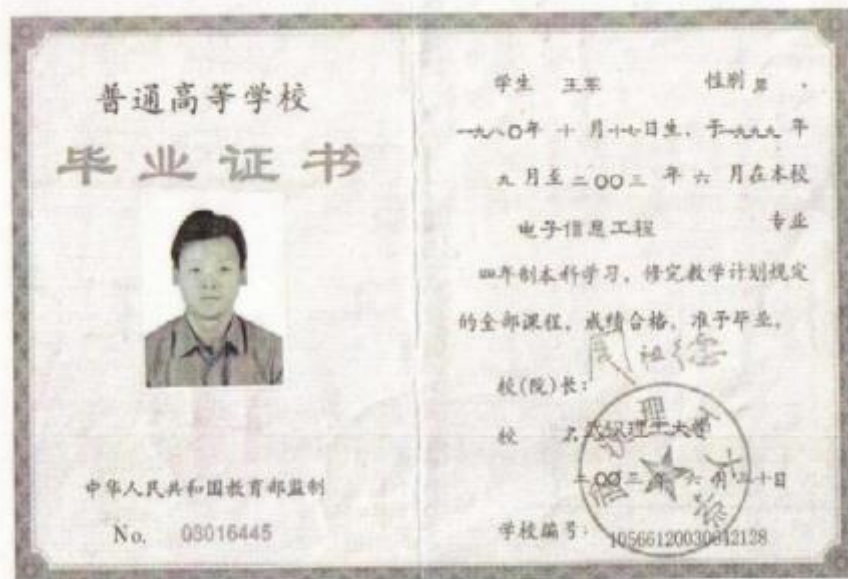 普通高等学校
毕业证书
中华人民共和国教育部监制
No. 03016445
学生 王军 性别 男 ，
一九八〇年 十 月十七日生，于一九九九 年
九 月至二〇〇三 年 六 月在本校
电子信息工程 专业
四年制本科学习，修完教学计划规定
的全部课程，成绩合格，准予毕业。
校(院)长：周祖德
校 名：武汉理工大学
二〇〇三年 六 月三十日
学校编号：